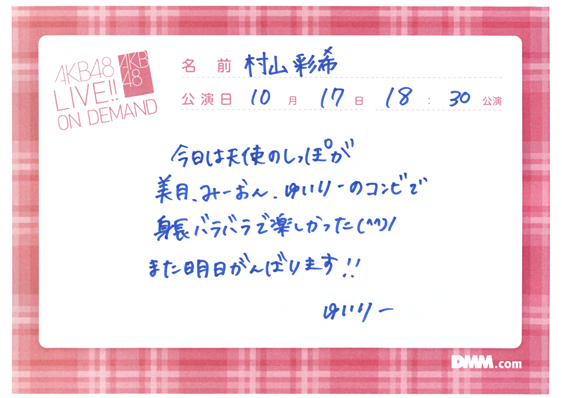 AKB48
LIVE!!
ON DEMAND
AKB
48
名 前 村山彩希
公演日 10月 17日 18:30 公演
今日は天使のしっぽが
美月、みーおん、ゆいりーのコンビで
身長バラバラで楽しかった(^^)/
また明日がんばります!!
ゆいりー
DMM.com